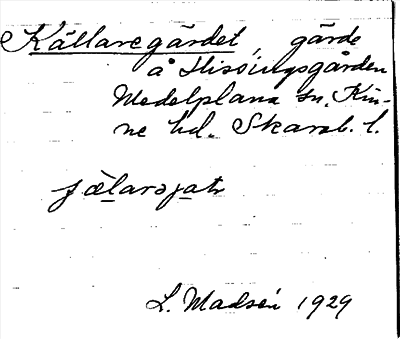 Källaregärdet, gärde
å Hisingsgården
Medelplana sn, Kin-
ne hd. Skarab. l.
L. Madsén 1929